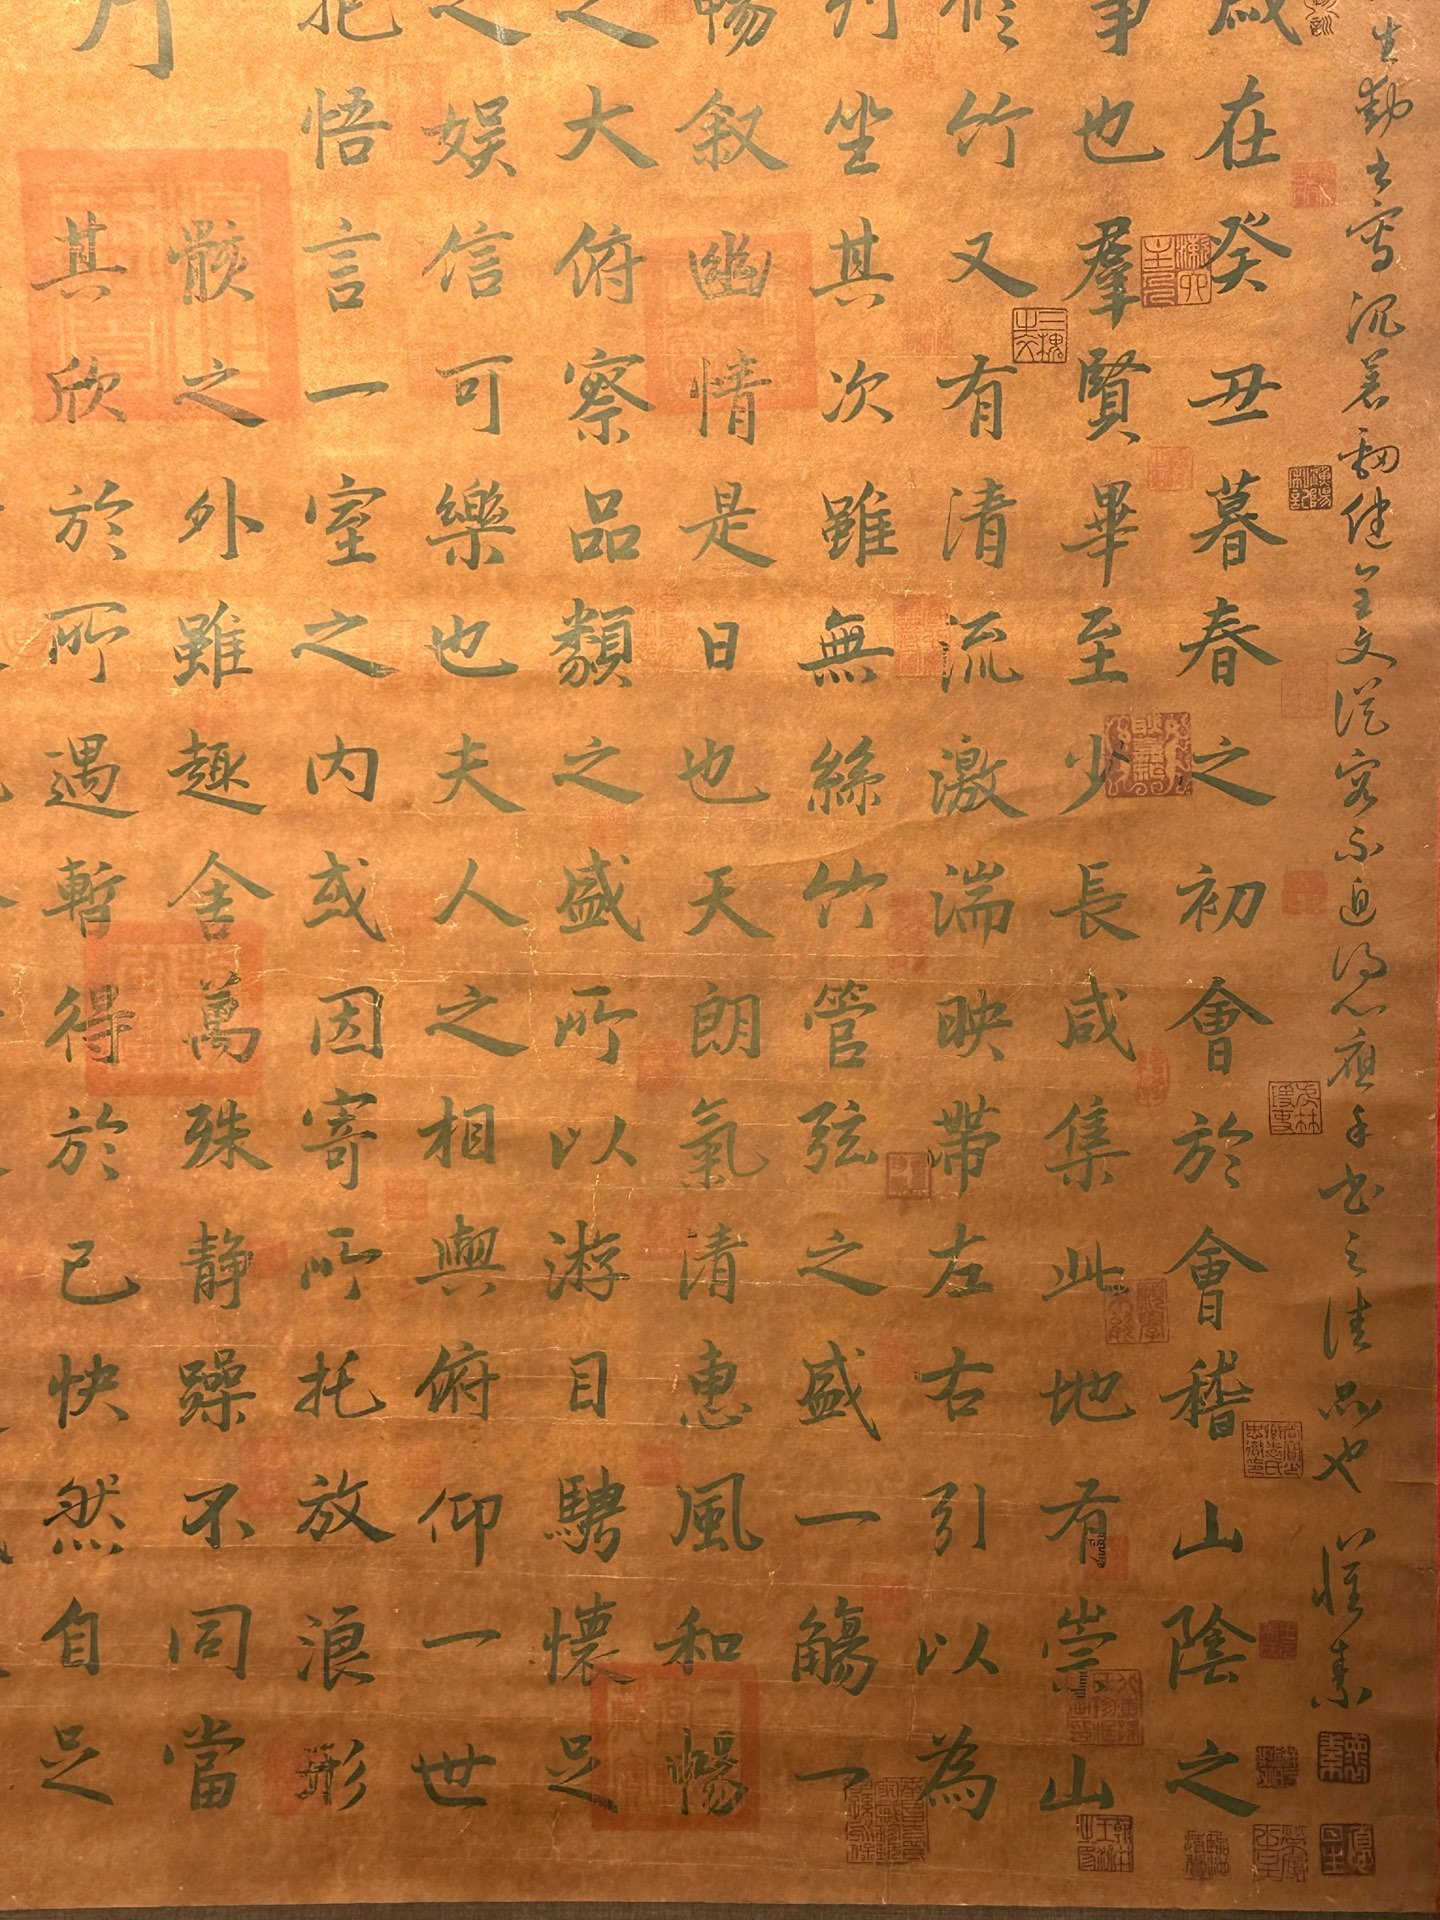 生動書寫沉着勁健全文從容不迫得心應手書之佳品也 懷素
歲在癸丑暮春之初會於會稽山陰之
事也羣賢畢至少長咸集此地有崇山
修竹又有清流激湍映帶左右引以為
列坐其次雖無絲竹管弦之盛一觴一
暢叙幽情是日也天朗氣清惠風和暢
之大俯察品類之盛所以游目騁懷足
之娛信可樂也夫人之相與俯仰一世
抱悟言一室之內或因寄所托放浪形
骸之外雖趣舍萬殊静躁不同當
其欣於所遇暫得於己快然自足